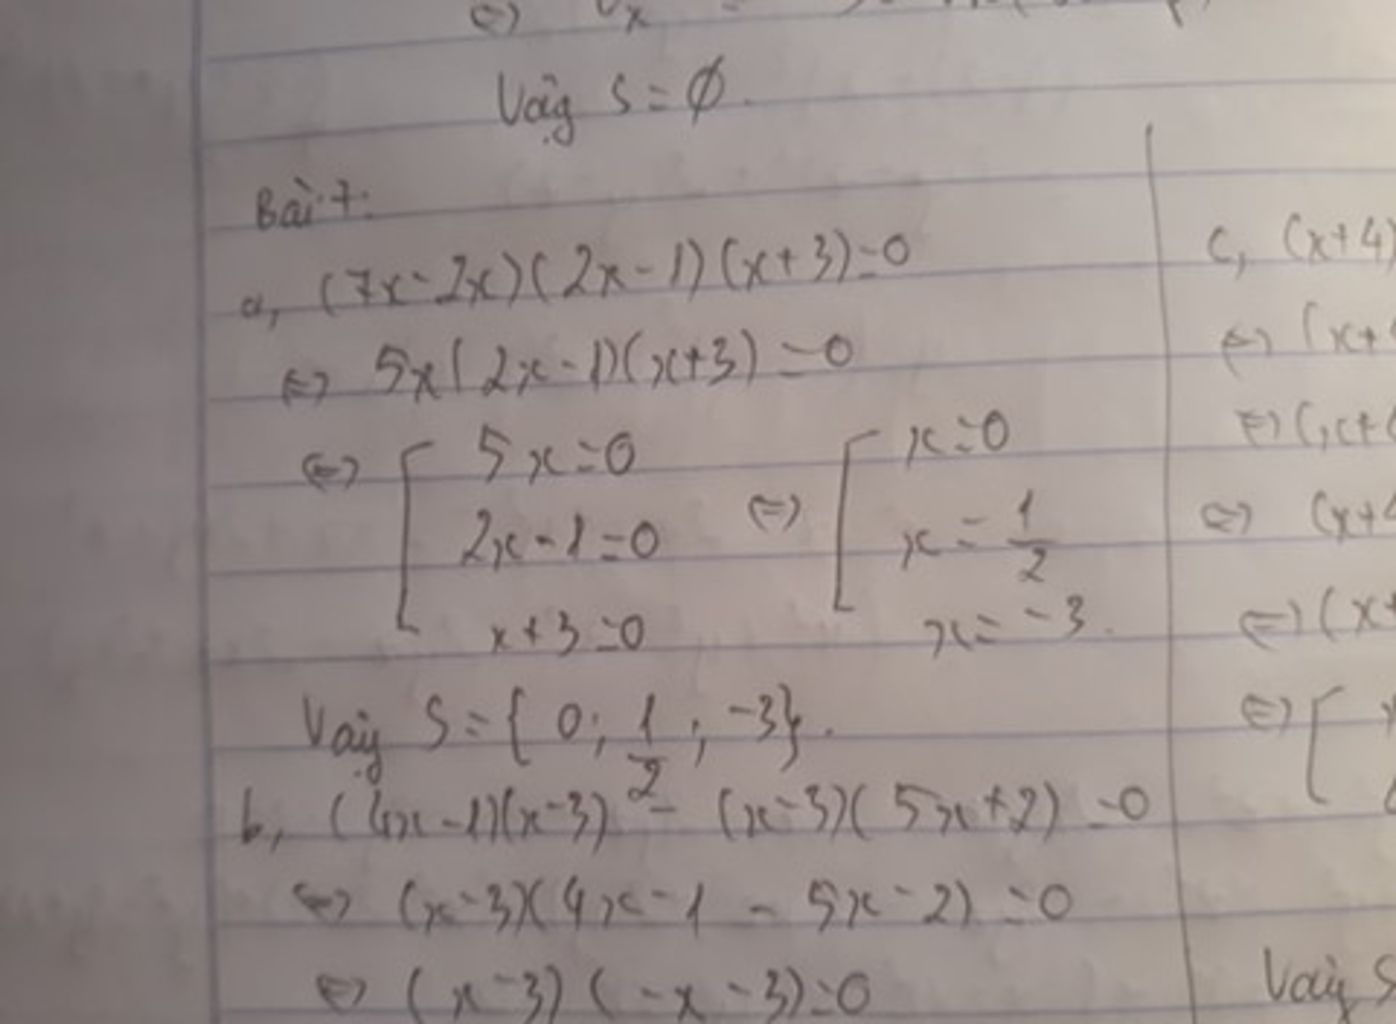 Vậy S = ∅.
Bài 7:
a, (7x - 2x)(2x - 1)(x + 3) = 0
⇔ 5x(2x - 1)(x + 3) = 0
⇔ [ 5x = 0 ⇔ [ x = 0
2x - 1 = 0 x = 1/2
x + 3 = 0 x = -3.
Vậy S = { 0; 1/2; -3}.
b, (4x - 1)(x - 3) - (x - 3)(5x + 2) = 0
⇔ (x - 3)(4x - 1 - 5x - 2) = 0
⇔ (x - 3)(-x - 3) = 0
c, (x + 4)
⇔ (x +
⇔ (x +
⇔ (x +
⇔ (x +
⇔ [
Vậy S